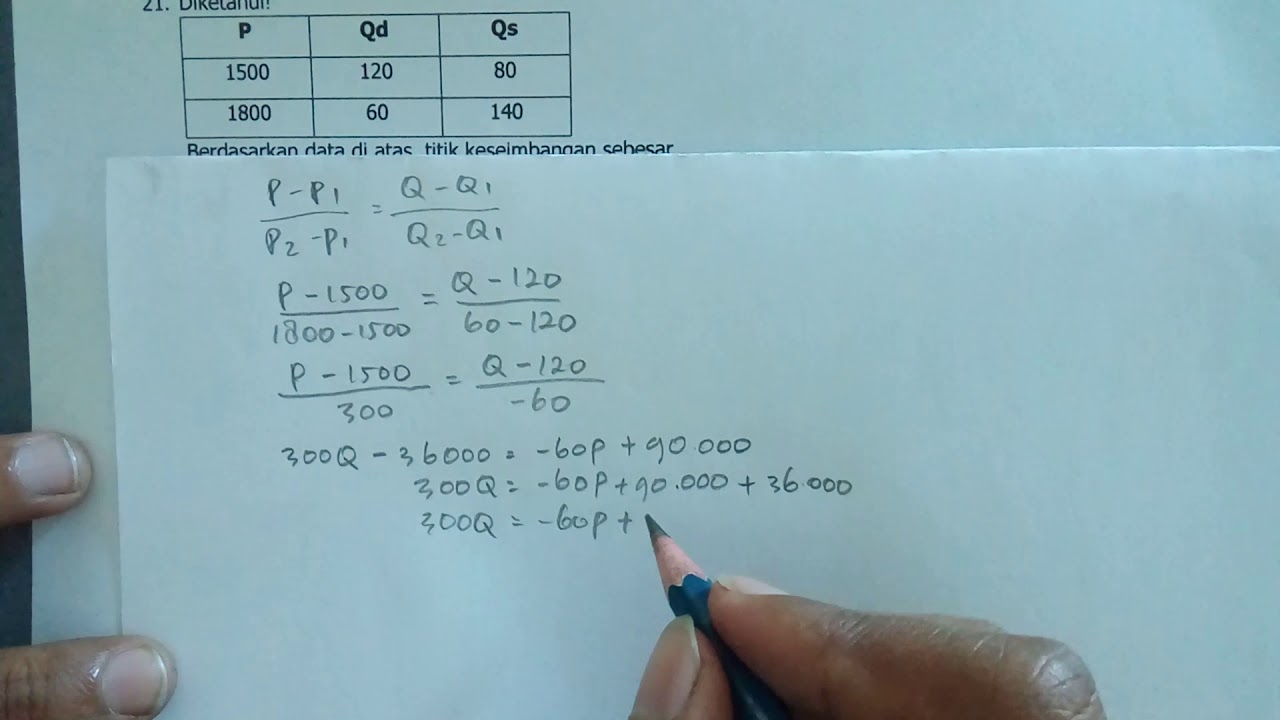 21. Diketahui!
P Qd Qs
1500 120 80
1800 60 140
Berdasarkan data di atas, titik keseimbangan sebesar
P - P1 / P2 - P1 = Q - Q1 / Q2 - Q1
P - 1500 / 1800 - 1500 = Q - 120 / 60 - 120
P - 1500 / 300 = Q - 120 / -60
300Q - 36000 = -60P + 90.000
300Q = -60P + 90.000 + 36.000
300Q = -60P +